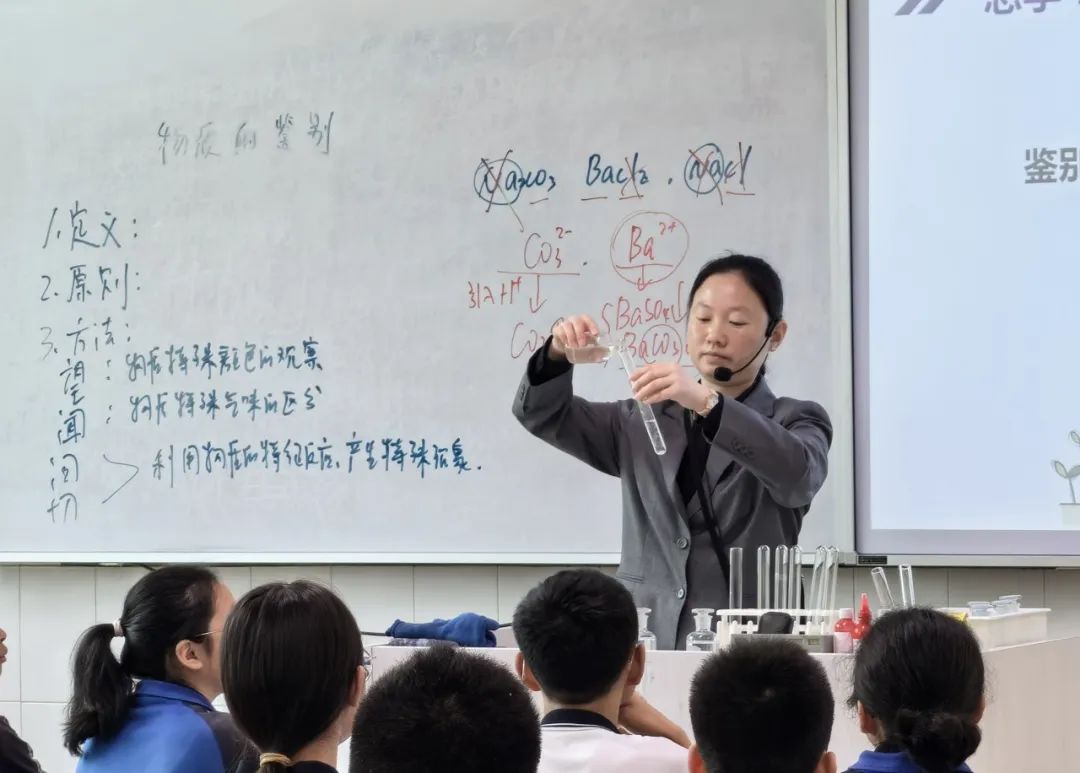 物质的鉴别
1.定义:
2.原则:
3.方法:
望:物质特殊颜色的观察
闻:物质特殊气味的区分
问
切
利用物质的特征反应,产生特殊现象.
Na2CO3 BaCl2 . NaCl
CO3²⁻ . Ba²⁺
引入H⁺
BaSO4↓
BaCO3
鉴别